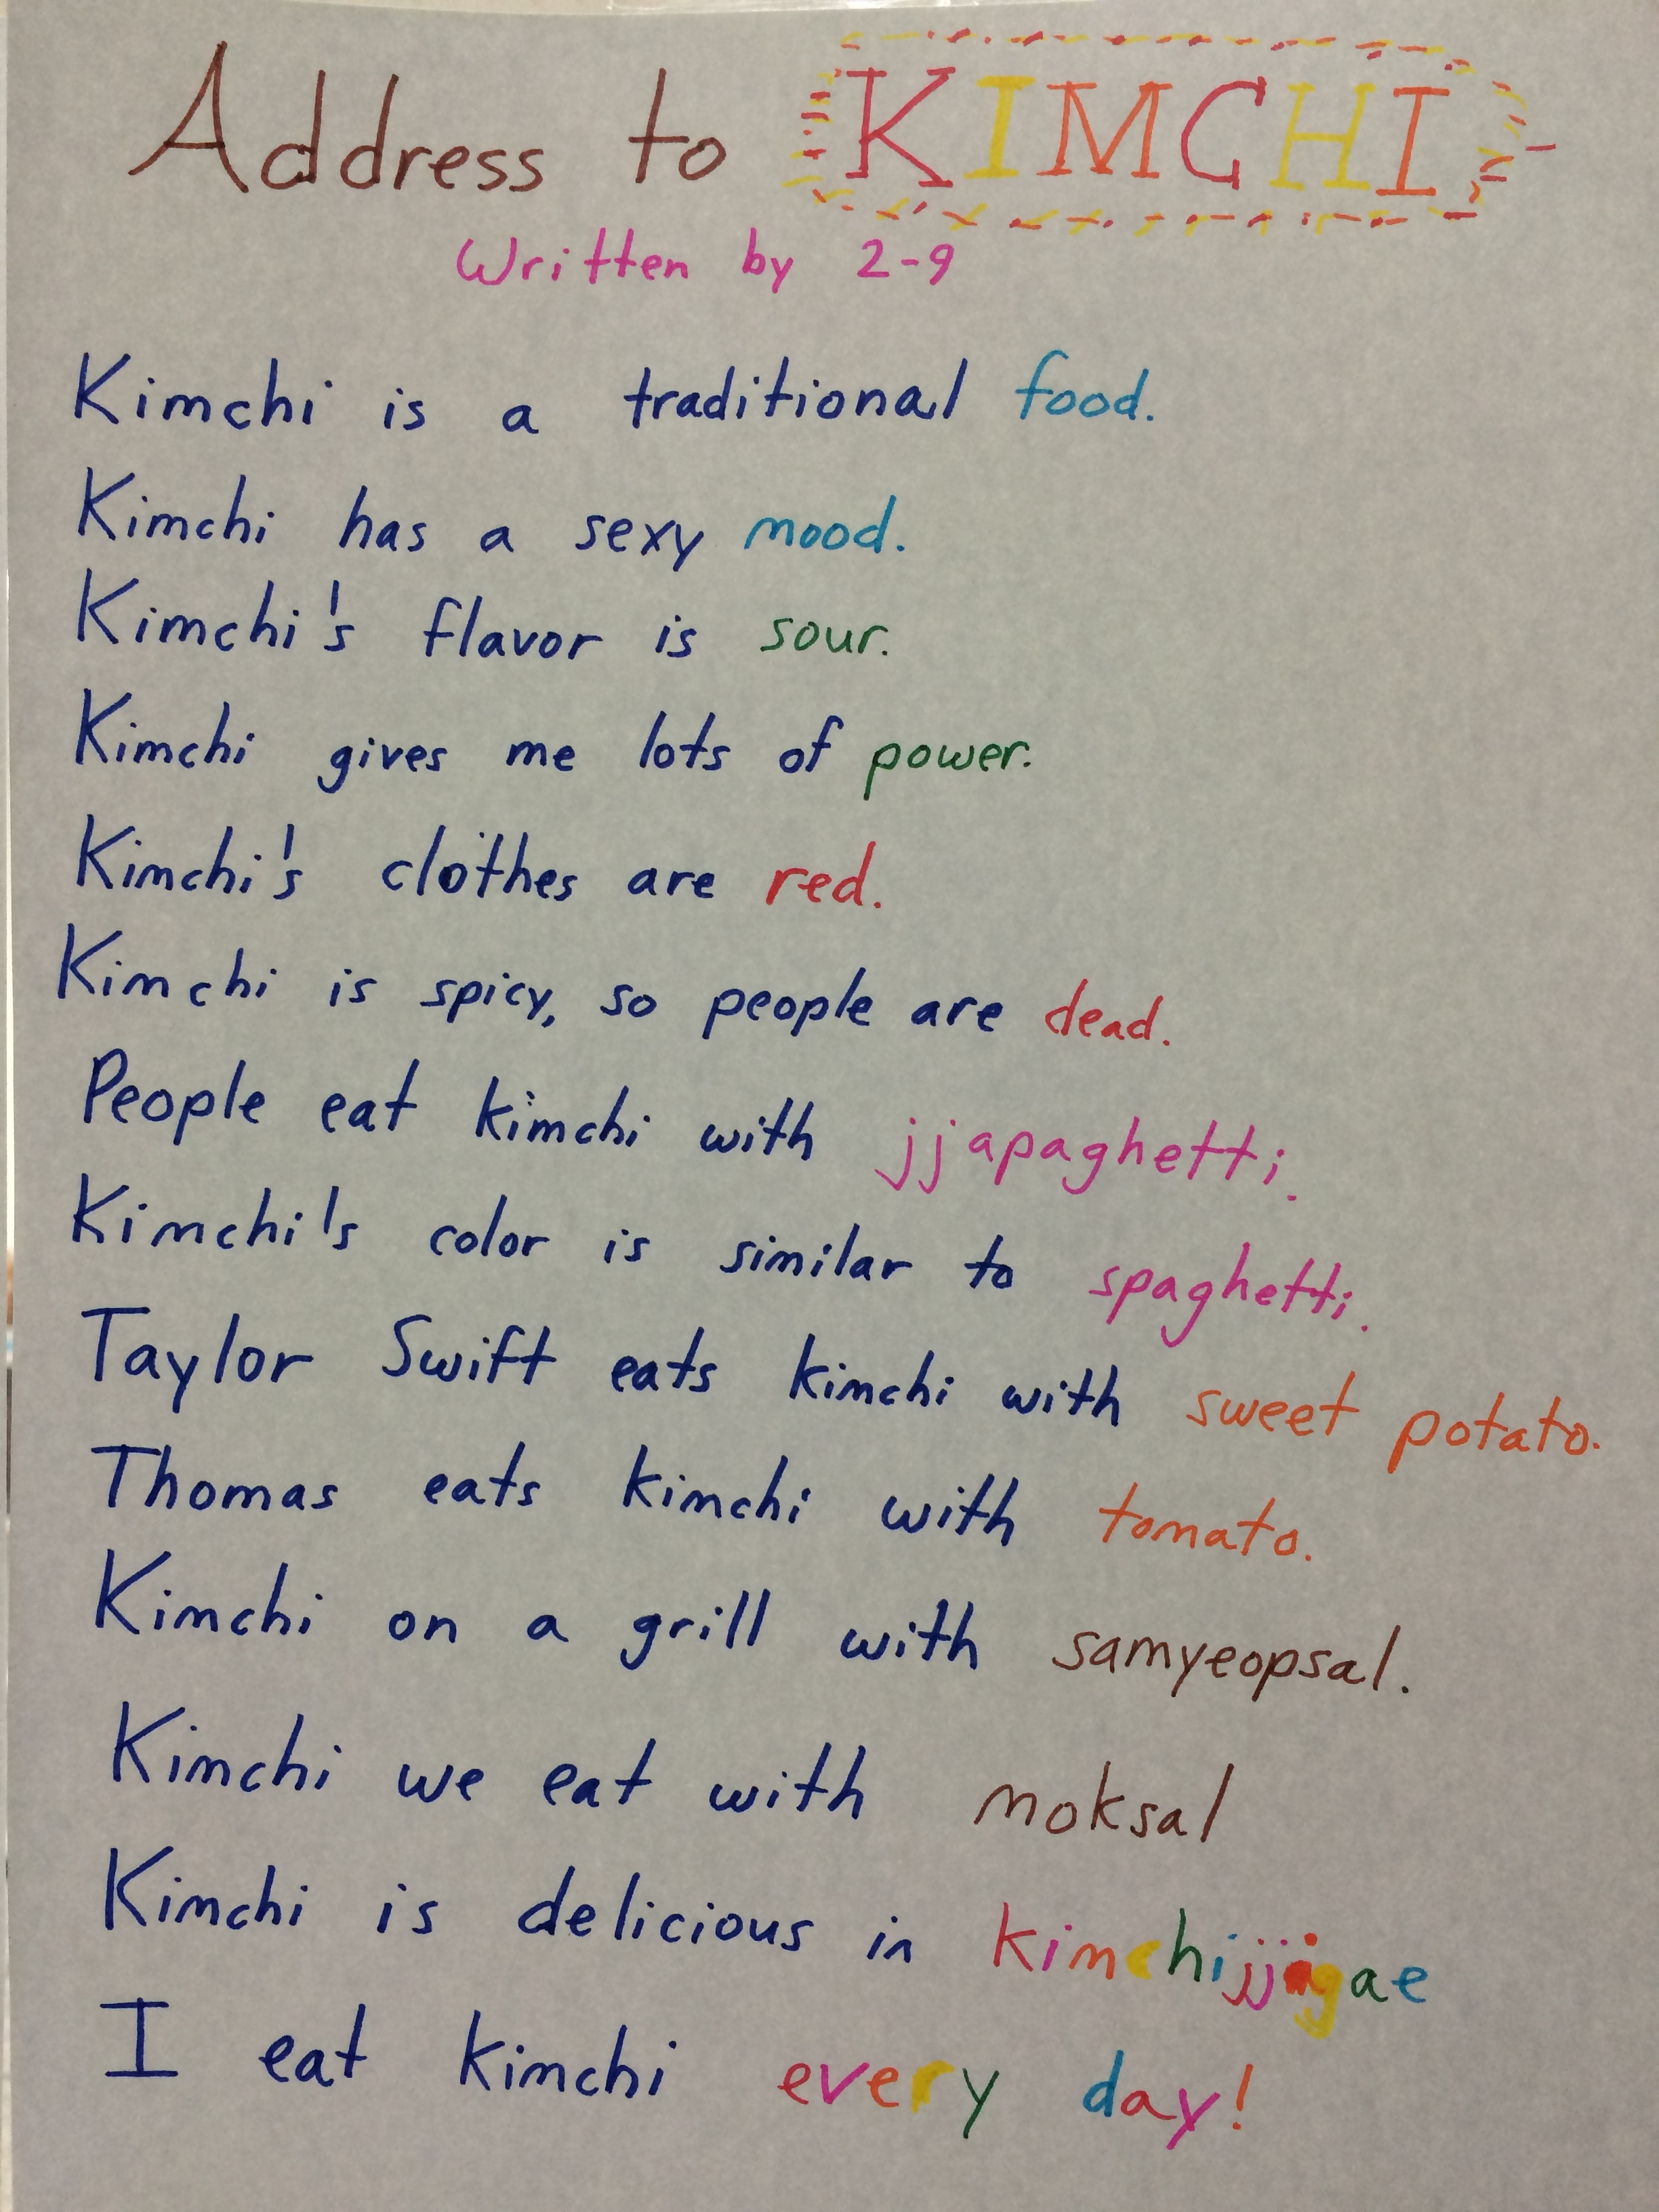 Address to KIMCHI
Written by 2-9
Kimchi is a traditional food.
Kimchi has a sexy mood.
Kimchi's flavor is sour.
Kimchi gives me lots of power.
Kimchi's clothes are red.
Kimchi is spicy, so people are dead.
People eat kimchi with jjapaghetti.
Kimchi's color is similar to spaghetti.
Taylor Swift eats kimchi with sweet potato.
Thomas eats kimchi with tomato.
Kimchi on a grill with samyeopsal.
Kimchi we eat with moksal
Kimchi is delicious in kimchijjigae
I eat kimchi every day!